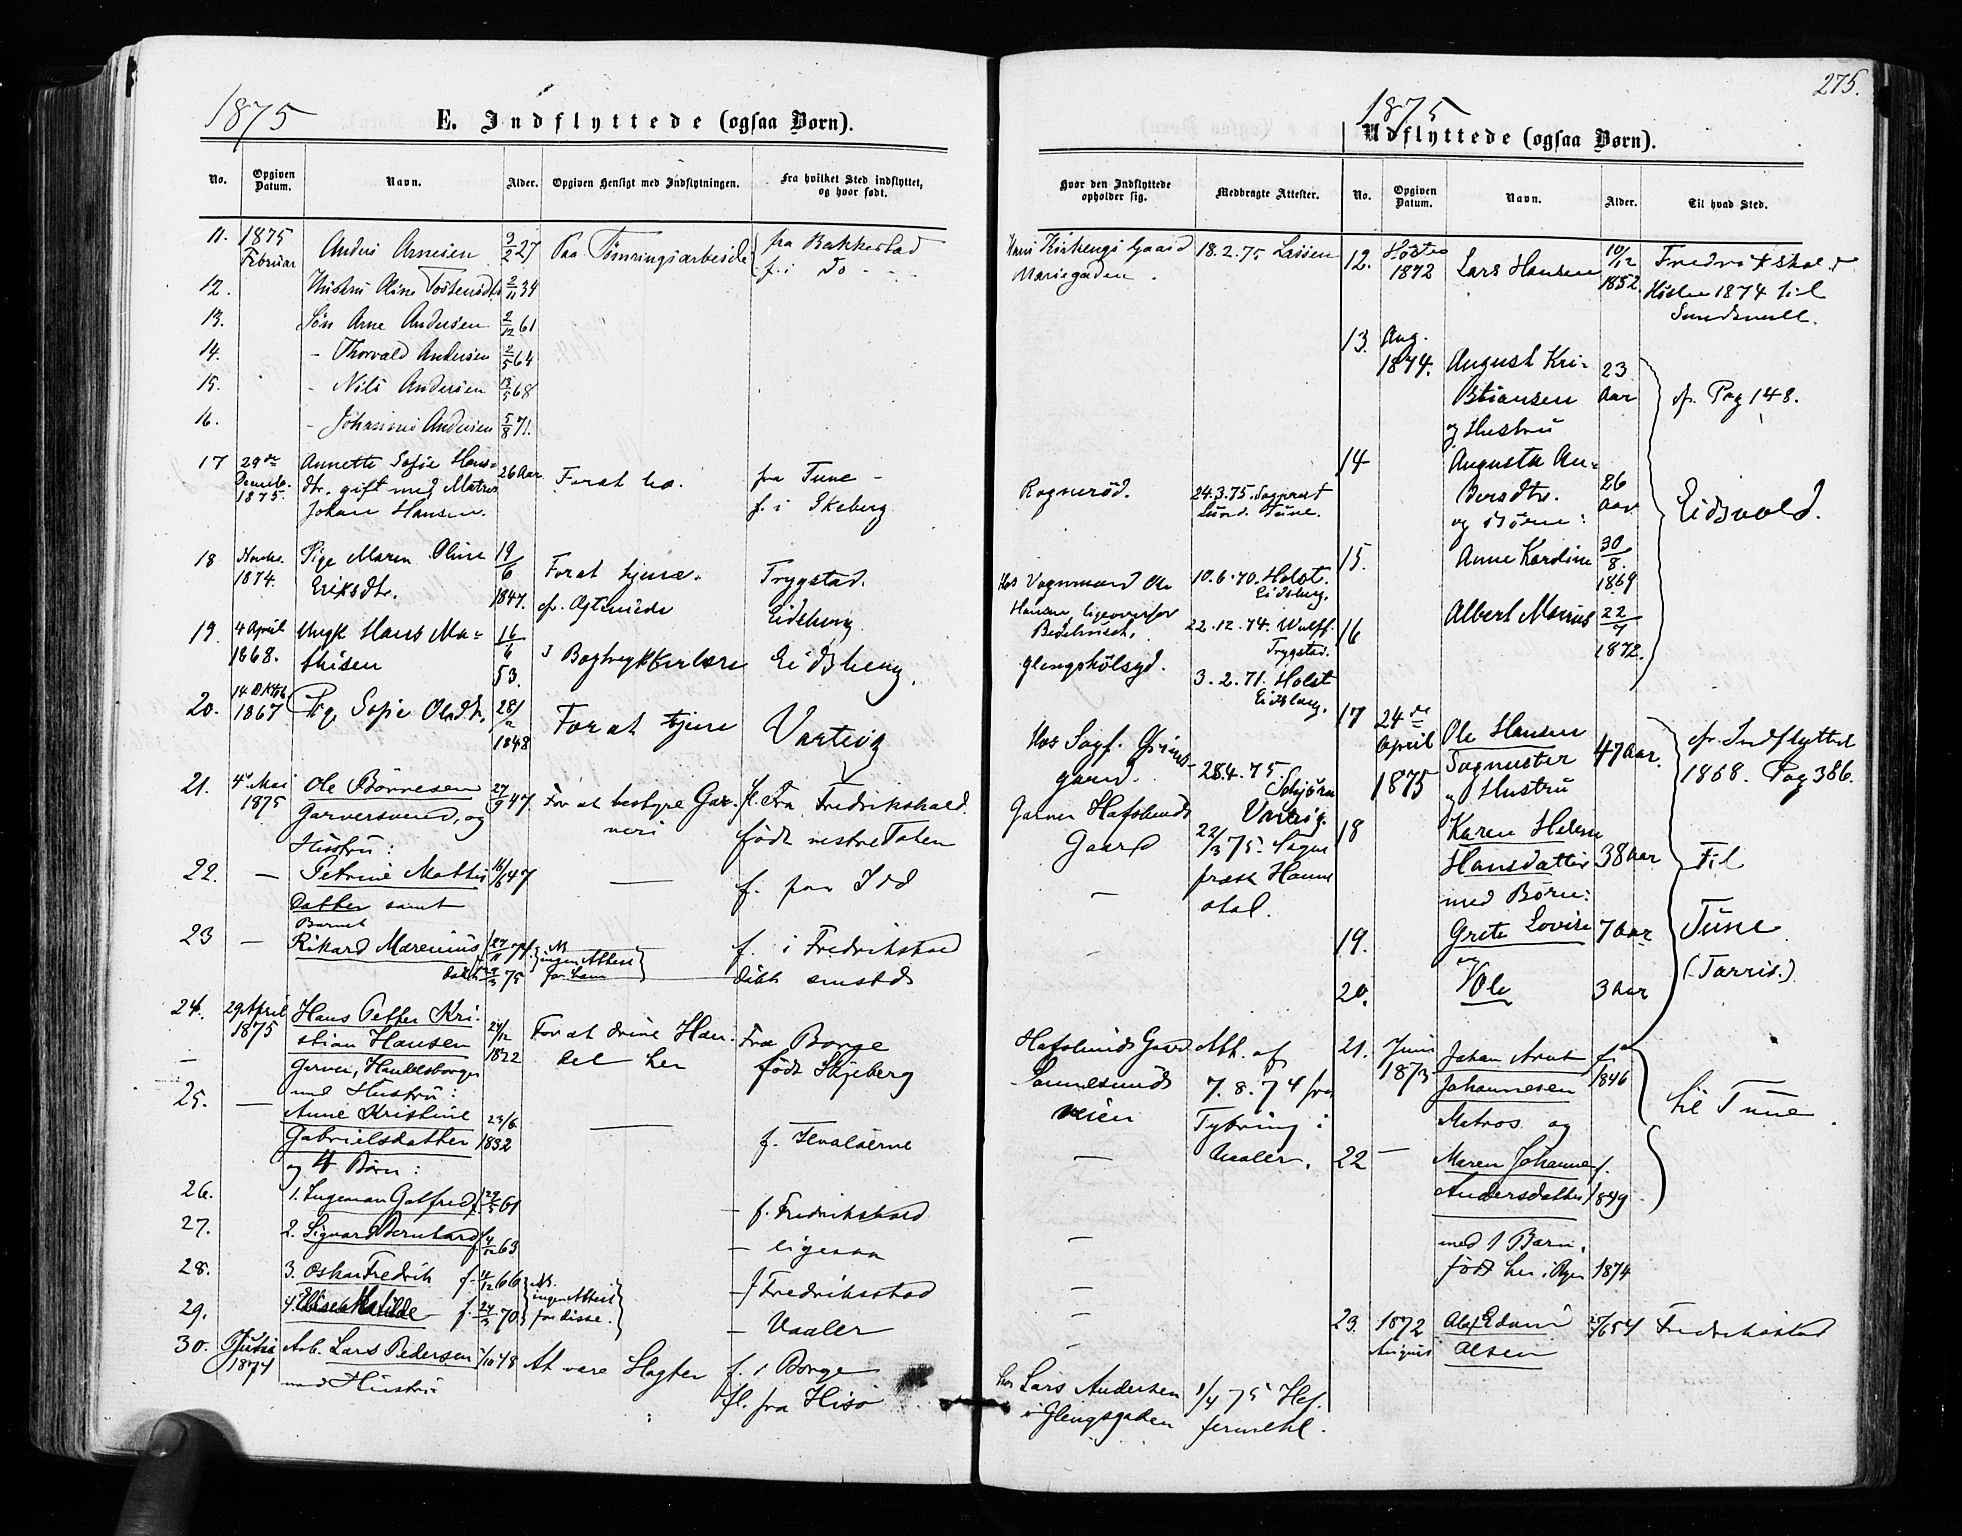 1875
E. Indflyttede (ogsaa Børn).
No. Opgiven Datum. Navn. Alder. Opgiven Hensigt med Indflytningen. Fra hvilket Sted indflyttet, og hvor født.
11. 1875 Februar Anders Arnesen 9/2 27 Paa Tømringsarbeide fra Bakkestad
f. i Do
12. Hustru Oline Tostensdtr 2/11 34
13. Søn Arne Andersen 2/12 61
14. - Thorvald Andersen 2/5 64
15. - Nils Andersen 13/5 68
16. - Johannes Andersen 5/8 71.
17 29de Decemb. 1875. Annette Sofie Hans-
dtr. gift med Matros 26 Aar For at bo. fra Tune -
Johan Hansen. f. i Skeberg
18 Novbr. 1874. Pige Maren Oline 19/6 1847. For at tjene. Trygstad.
Eriksdtr. Eidsberg
19. 4 April 1868. Ungk Hans Ma-
thisen 16/6 53. Eidsberg.
20. 14 Oktb 1867 Pige Sofie Olsdtr. 28/2 1848 For at tjene Varteig
21. 4de Mai 1875 Ole Børresen 27/9 47. For at bestyre Gar- fl. Fra Fredrikshald.
Garversvend, og neri født vestre Toten
Hustru:
22. — Petrine Mathis 16/6 47 — f. paa Id
Datter samt
Barnet
23 — Rikard Marenius 27/11 74. ingen Attest f. i Fredrikstad
3/75 for ham døbt smstds
24. 29 April 1875 Hans Petter Kri-
stian Hansen 24/12 1822 For at drive Han- Fra Borge
Garver, Handelsborger del her født Skjeberg
— med Hustru:
25. — Anne Kristine
Gabrielsdatter 23/6 1832 — f. Hvaløerne
og 4 Børn:
26. 1. Ingeman Gotfred f. 27/5 61 - f. Fredrikstad
27. 2. Sigvard Bernhard f. 4/12 63 - ligesaa
28. 3. Oskar Fredrik f. 4/12 66 ingen Attest f Fredriksstad
29. 4. Elise Matilde f. 24/3 70 for disse. - Vaaler
30. Juli 1874 Arb. Lars Pedersen 1/10 48 At være Slagter f. i Borge
med Hustru fl. fra Hisø
275.
1875
Udflyttede (ogsaa Børn).
Hvor den Indflyttede opholder sig. Medbragte Attester. No. Opgiven Datum. Navn. Alder. Til hvad Sted.
Hans Kirkengs Gaard 18.2.75 Lassen
Mariegaden.
Rognerød. 24.3.75. Sogneprest
Lund. Tune.
Hos Vognmand Ole 10.6.70. Holst.
Hansen ligeoverfor Eidsberg.
Bedehuset. 22.12.74. Wulff.
Trygstad.
Glengshølsgd. 3.2.71. Holst
Eidsberg.
Hos Sagf. Grims-
gaard. 28.4.75. Schjørn
Varteig.
Garver Hafslunds 22/3 75. Sogne
Gaard præst Hanne
— stad.
—
Hafslunds Gaard Att. af
Sannesunds 7.8.74 fra
veien Tybring i
— Vaaler.
hos Lars Andersen 1/4 75 Hef.
i Glengsgaden fermehl.
12. Høsten 1872 Lars Hansen 10/12 1852. Fredrikshald
Høsten 1874 til
Sundsvall.
13. Aug. 1874. August Kri-
stiansen 23 Aar cfr. Pag 148.
og Hustru
14 Augusta An-
dersdtr. 26 Aar Eidsvold.
og Børn:
15. Anne Karoline 30/8. 1869
16 Albert Marius 22/7 1872.
17 24de April 1875 Ole Hansen 47 Aar. cfr. Indflyttede
Sagmester 1868. Pag 386.
og Hustru
18 Karen Helene
Hansdatter 38 Aar Til
med Børn:
19. Grete Lovise 7 Aar Tune.
og
20. Ole 3 Aar
21. Juni 1873 Johan Arnt f. 1846
Johannesen til Tune
Matros og
22 — Maren Johanne f.
Andersdatter 1849
med 1 Barn,
født her i Byen 1874
23. 1872 August Olaf Edvin 54 Fredriksstad
Olsen